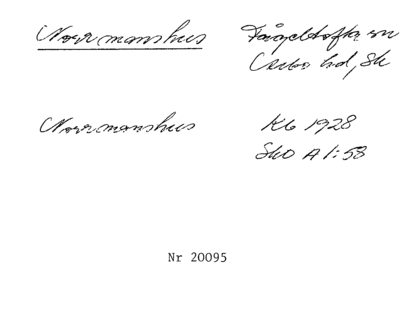 Norrmanshus Fågeltofta sn
Albo hd, Sk
Norrmanshus Kb 1928
SkO A 1:58
Nr 20095